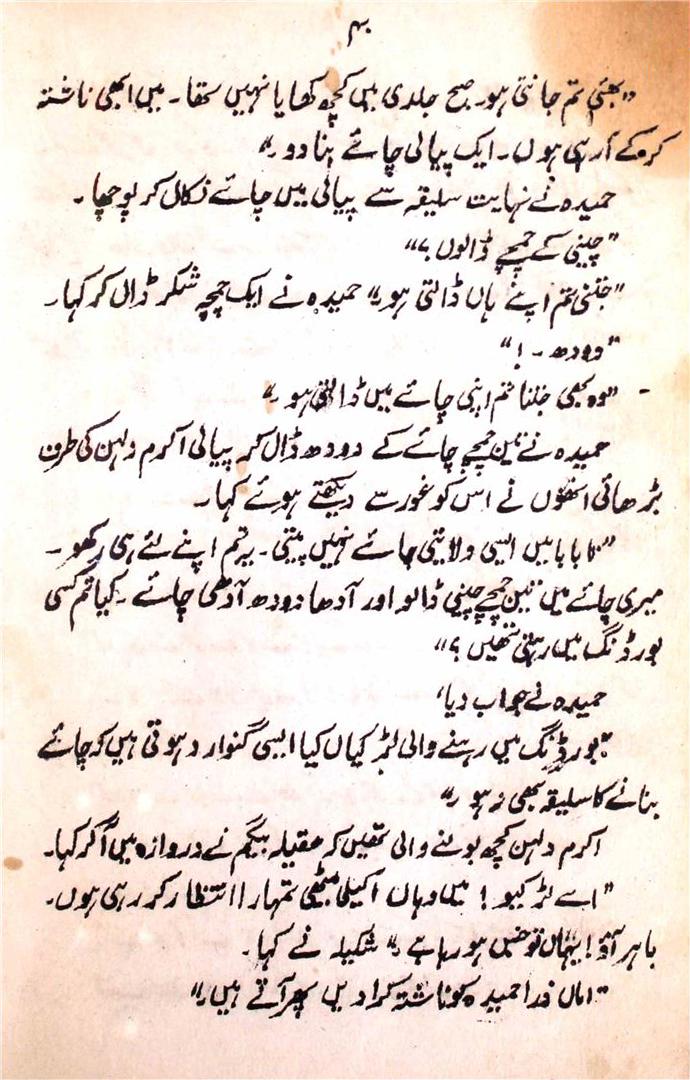 ۴۰
"بھئی تم جانتی ہو۔ صبح جلدی میں کچھ کھایا نہیں تھا۔ میں ابھی ناشتہ
کر کے آ رہی ہوں۔ ایک پیالی چائے بنا دو۔"
حمیدہ نے نہایت سلیقہ سے پیالی میں چائے نکال کر پوچھا۔
"چینی کے چمچے ڈالوں؟"
"جتنی تم اپنے ہاں ڈالتی ہو۔" حمیدہ نے ایک چمچہ شکر ڈال کر کہا۔
"دودھ۔!"
"وہ بھی جتنا تم اپنی چائے میں ڈالتی ہو۔"
حمیدہ نے تین چمچے چائے کے دودھ ڈال کر پیالی اکرم دلہن کی طرف
بڑھائی انھوں نے اس کو غور سے دیکھتے ہوئے کہا۔
"نا بابا میں ایسی ولایتی چائے نہیں پیتی۔ یہ تم اپنے لئے ہی رکھو۔
میری چائے میں تین چمچے چینی ڈالو اور آدھا دودھ آدھی چائے۔ کیا تم کسی
بورڈنگ میں رہتی تھیں؟"
حمیدہ نے جواب دیا'
"بورڈنگ میں رہنے والی لڑکیاں کیا ایسی گنوار ہوتی ہیں کہ چائے
بنانے کا سلیقہ بھی نہ ہو۔"
اکرم دلہن کچھ بولنے والی تھیں کہ عقیلہ بیگم نے دروازہ میں آ کر کہا۔
"اے لڑکیو! میں وہاں اکیلی بیٹھی تمہارا انتظار کر رہی ہوں۔
باہر آؤ! یہاں تو حبس ہو رہا ہے۔" شکیلہ نے کہا۔
"اماں ذرا حمیدہ کو ناشتہ کرا دیں پھر آتے ہیں۔"